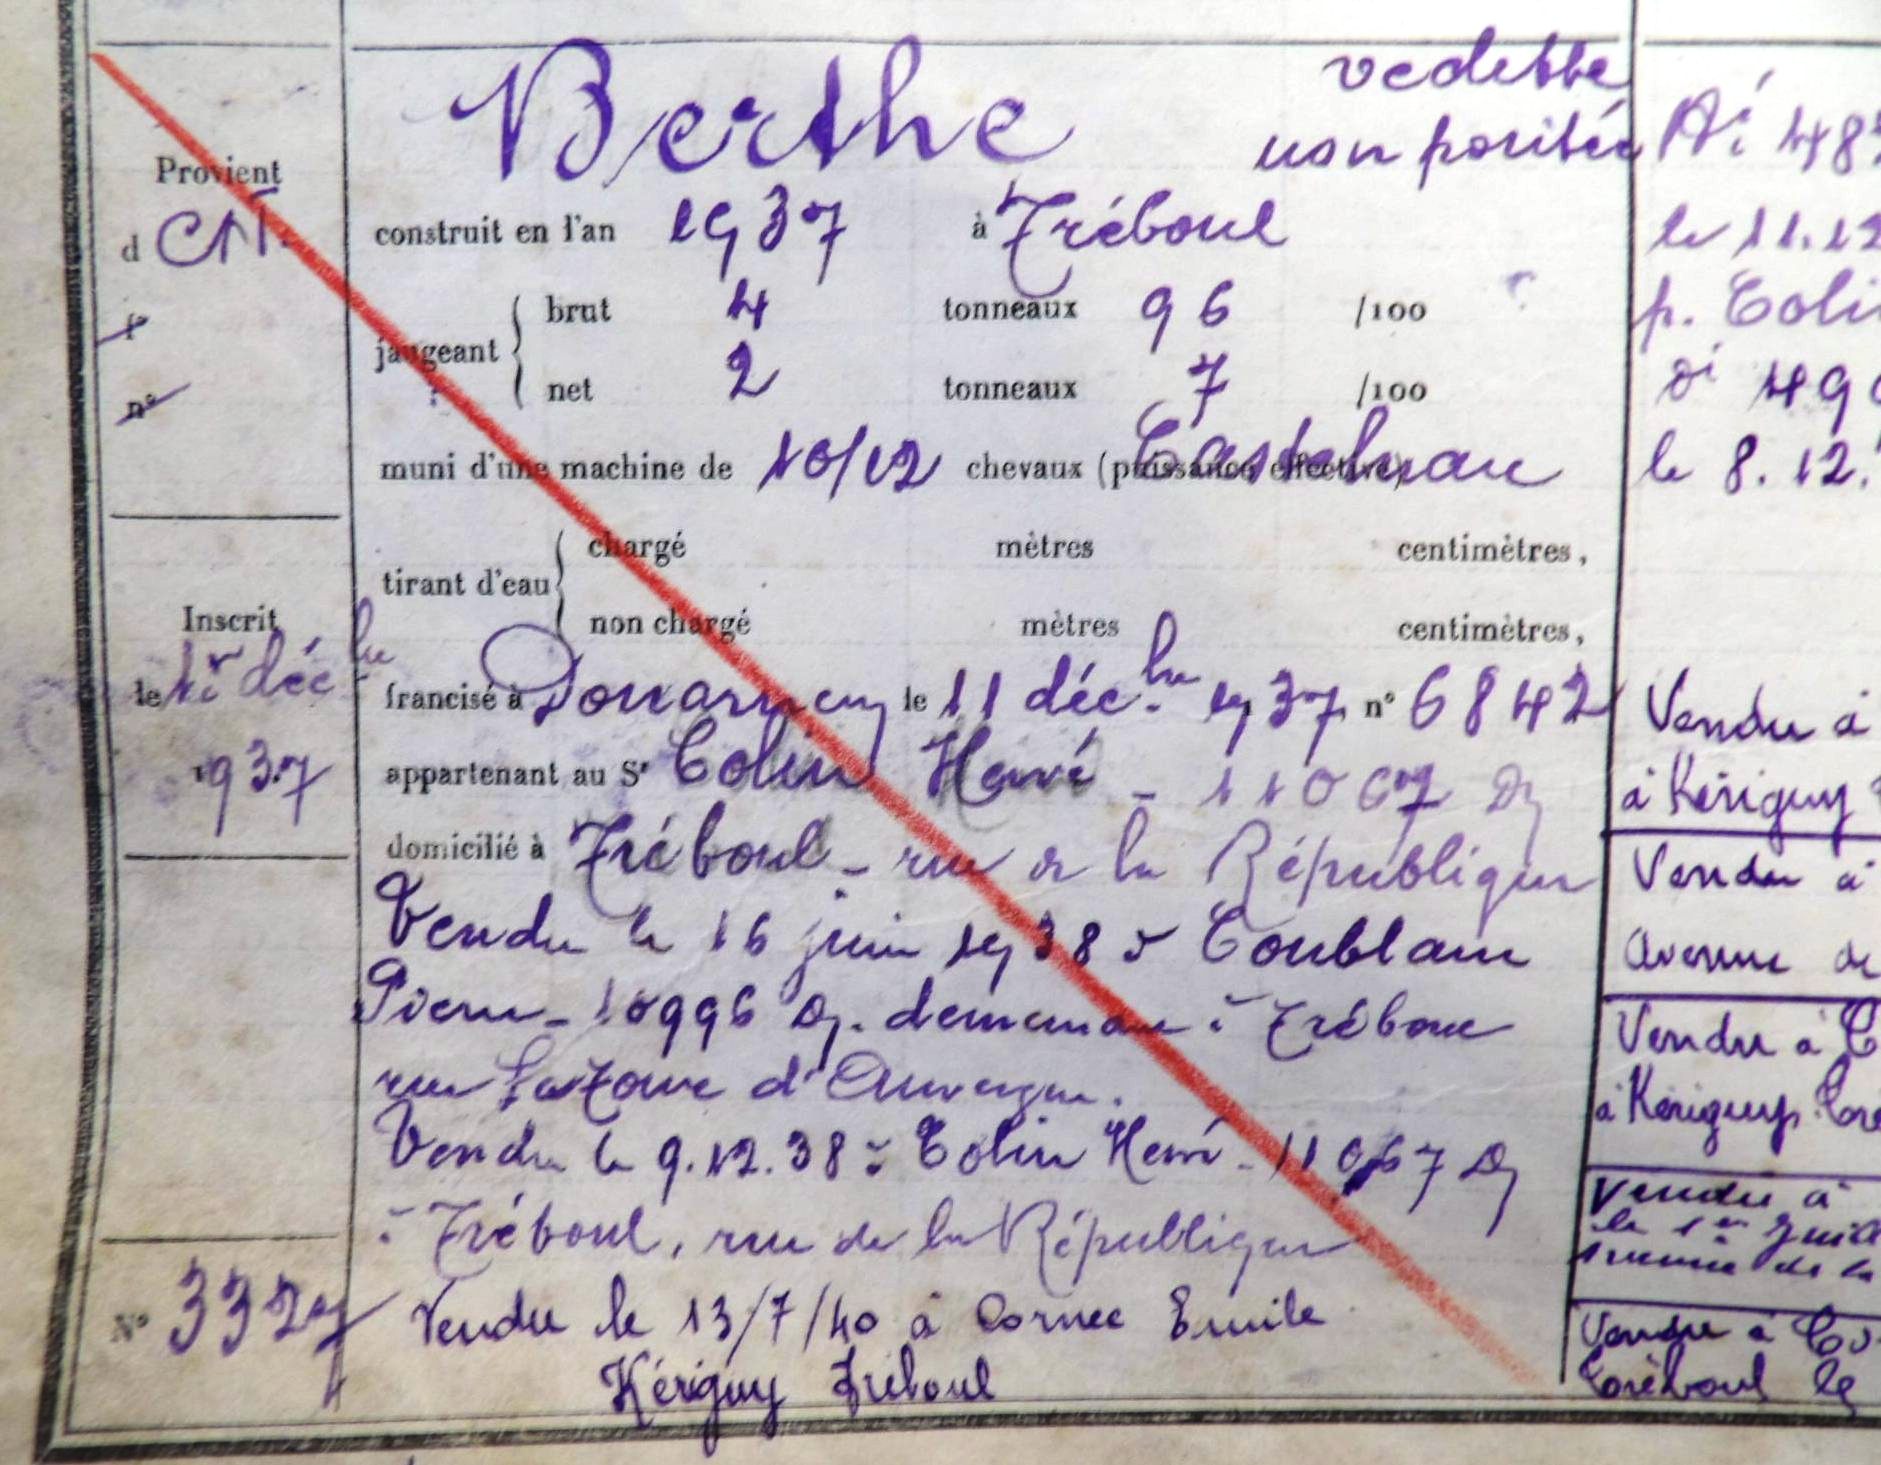 Provient
d CN.
f°
n°
Inscrit
le 1er déc bre
1937
N° 3327
Berthe
vedette
non pontée
construit en l'an 1937 à Tréboul
jaugeant { brut 4 tonneaux 96 /100
net 2 tonneaux 7 /100
muni d'une machine de 10/12 chevaux (puissance effective) Castelnau
tirant d'eau { chargé mètres centimètres,
non chargé mètres centimètres,
francisé à Douarnenez le 11 déc. bre 1937 n° 6842
appartenant au Sr Colin Hervé - 11067 Dz
domicilié à Tréboul - rue de la République
Vendu le 16 juin 1938 à Coublanc
Pierre - 10996 Dz. demeurant à Tréboul
rue La Tour d'Auvergne.
Vendu le 9.12.38 à Colin Hervé - 11067 Dz
à Tréboul, rue de la République
Vendu le 13/7/40 à Cornec Emile
Kériguy Tréboul
Ai 48
le 11.12
p. Coli
di 49
le 8.12.
Vendu à
à Kériguy
Vendu à
Avenue de
Vendu à C
à Kériguy
Vendu à
le 1er Juil
de la
Vendu à Co
Tréboul le